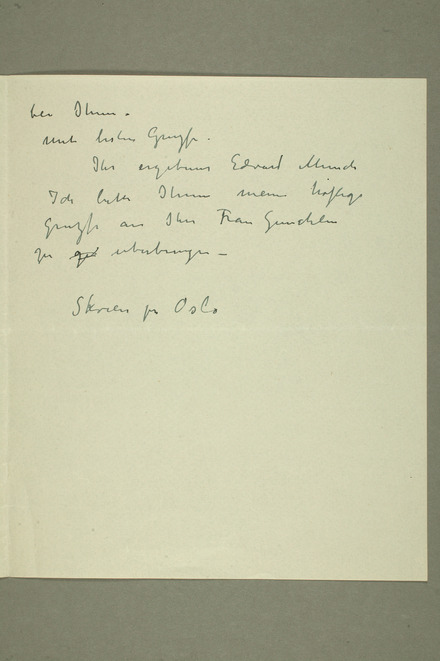 bei Ihnen.
mit besten Grüße.
Ihr ergebener Edvard Munch
Ich bitte Ihnen meine höflige
Grüße an Ihre Frau Gemahlin
zu überbringen –
Skøien pr Oslo